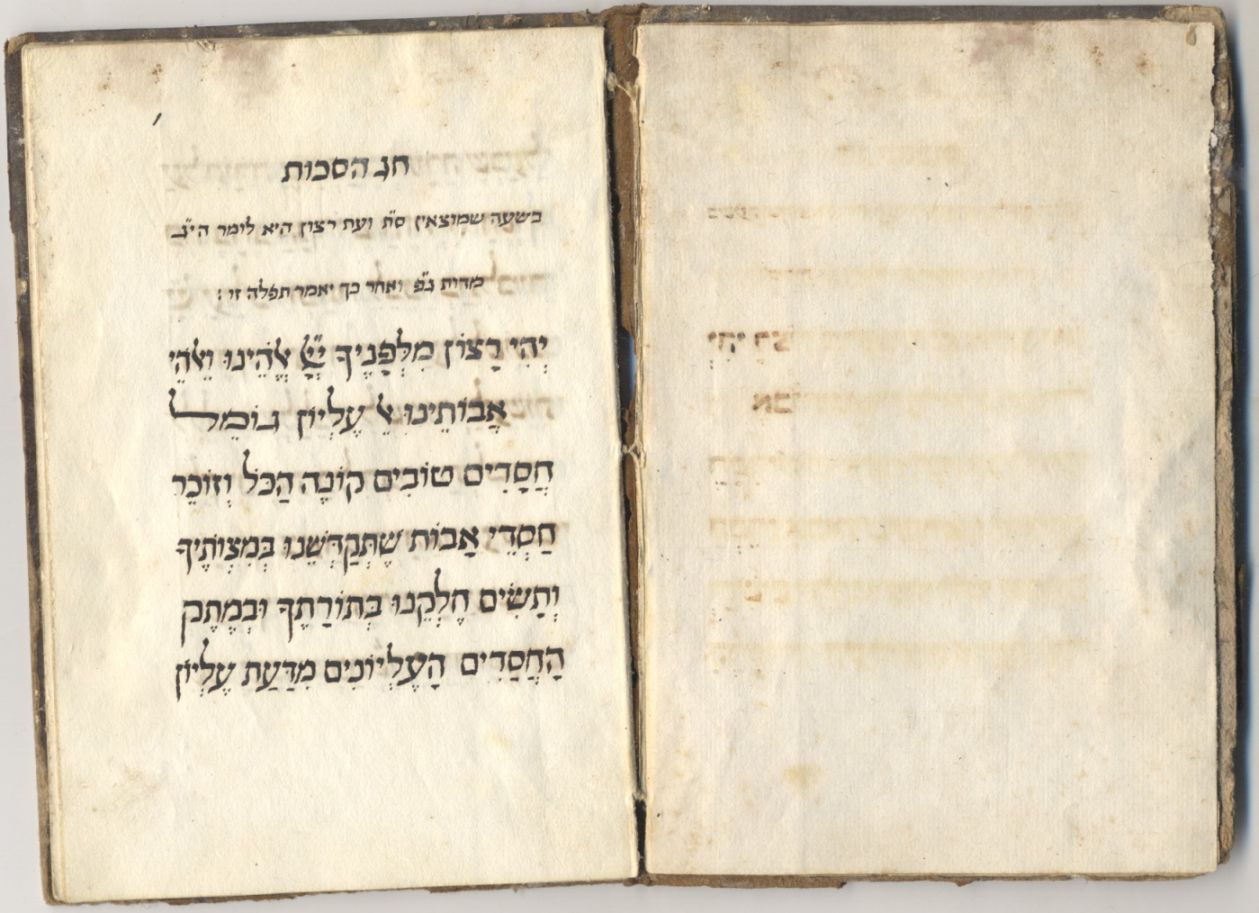 חג הסכות
בשעה שמוצאין ס״ת ועת רצון היא לומר הי״ג
מדות ג״פ ואחר כך יאמר תפלה זו :
יְהִי רָצוֹן מִלְּפָנֶיךָ אֱלֹהֵינוּ וֵאלֹהֵי
אֲבוֹתֵינוּ אֵל עֶלְיוֹן גוֹמֵל
חֲסָדִים טוֹבִים קוֹנֶה הַכֹּל וְזוֹכֵר
חַסְדֵי אָבוֹת שֶׁתְּקַדְּשֵׁנוּ בְּמִצְוֹתֶיךָ
וְתָשִׂים חֶלְקֵנוּ בְּתוֹרָתֶךָ וּבְמֶתֶק
הַחֲסָדִים הָעֶלְיוֹנִים מִדַּעַת עֶלְיוֹן